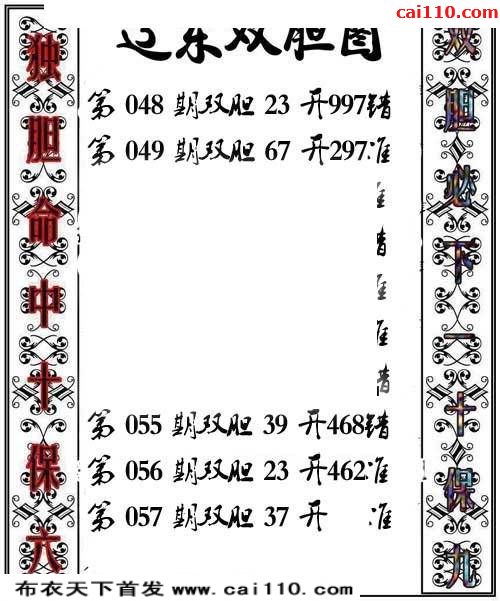 cai110.com
辽东双胆图
独胆命中十保六
双胆必下一十保九
第 048 期双胆 23 开997错
第 049 期双胆 67 开297准
准
错
准
准
错
第 055 期双胆 39 开468错
第 056 期双胆 23 开462准
第 057 期双胆 37 开 准
布衣天下首发 www.cai110.com